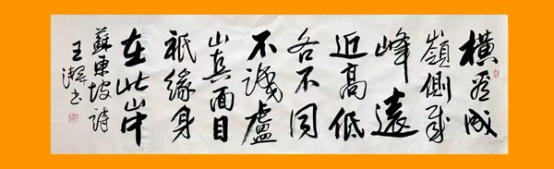 橫看成
嶺側成
峰遠
近高低
各不同
不識盧
山真面目
祇緣身
在此山中
蘇東坡詩
王书